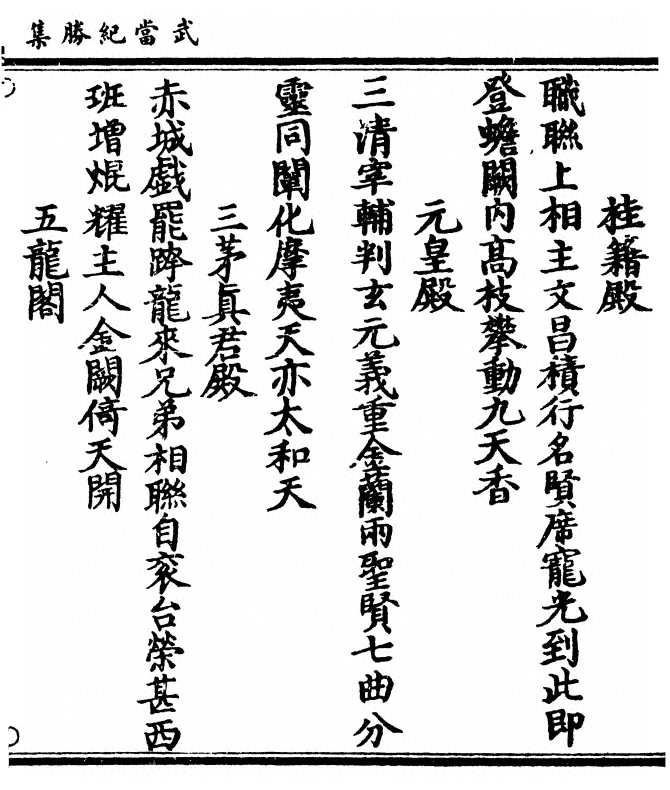 武當紀勝集
桂籍殿
職聯上相主文昌積行名賢席寵光到此即
登蟾闕內高枝攀動九天香
元皇殿
三清宰輔判玄元義重金蘭兩聖賢七曲分
靈同闡化摩夷天亦太和天
三茅真君殿
赤城戲罷跨龍來兄弟相聯自衮台榮甚西
班增焜耀主人金闕倚天開
五龍閣